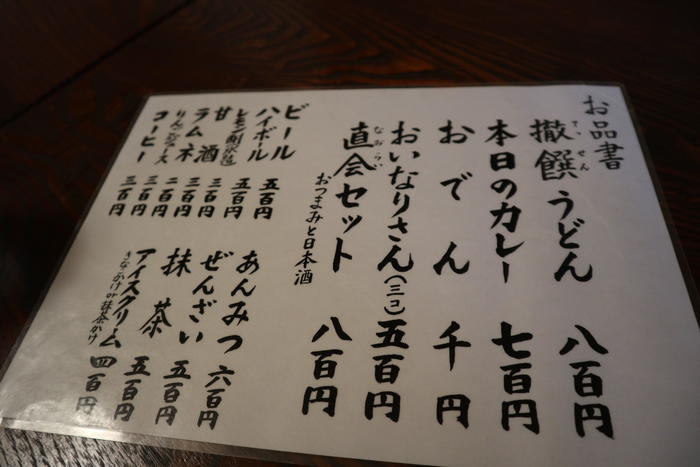 お品書
撤饌うどん 八百円
本日のカレー 七百円
おでん 千円
おいなりさん(三コ) 五百円
なおらい
直会セット 八百円
おつまみと日本酒
ビール 五百円
ハイボール 五百円
レモン 三百円
甘酒 三百円
ラムネ 二百円
りんごジュース 三百円
コーヒー 三百円
あんみつ 六百円
ぜんざい 五百円
抹茶 五百円
アイスクリーム 四百円
抹茶かけ